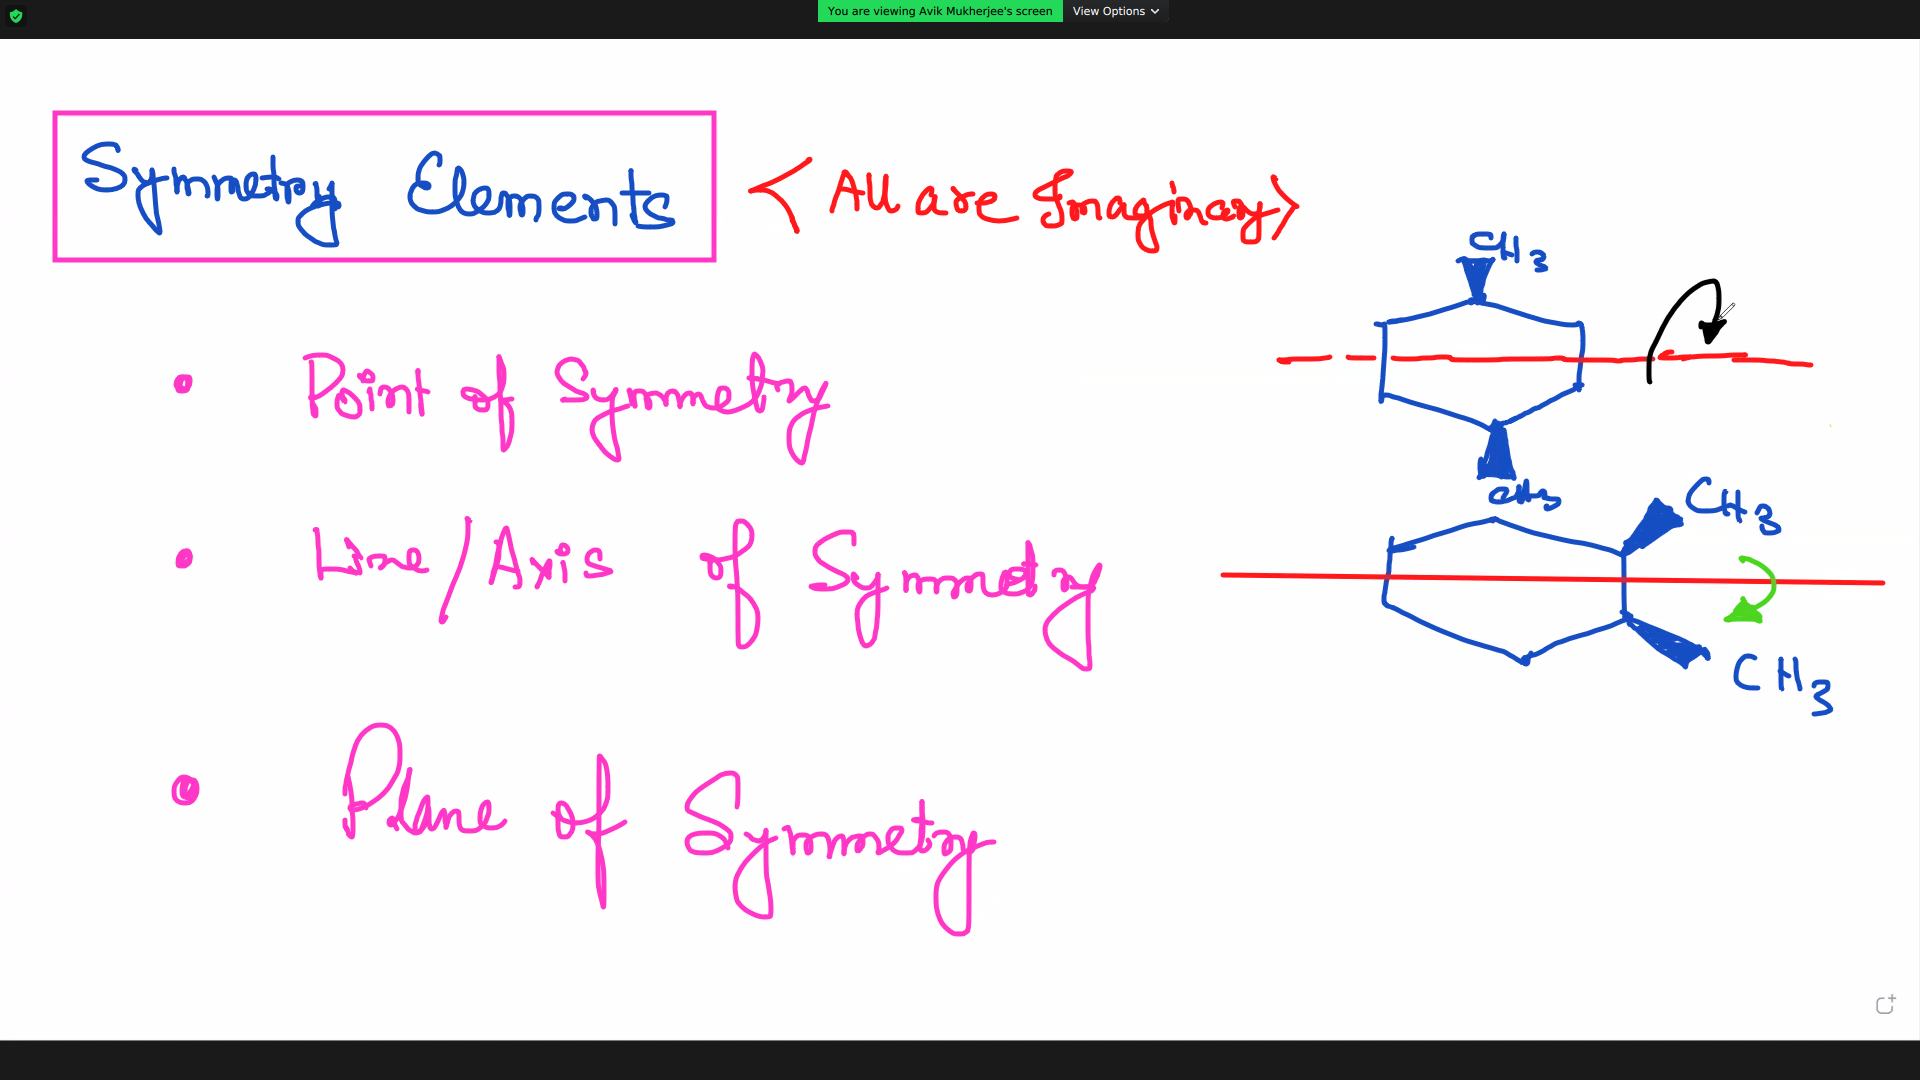 You are viewing Avik Mukherjee's screen View Options
Symmetry Elements < All are Imaginary >
CH3
• Point of Symmetry
CH3
CH3
• Line/Axis of Symmetry
CH3
• Plane of Symmetry